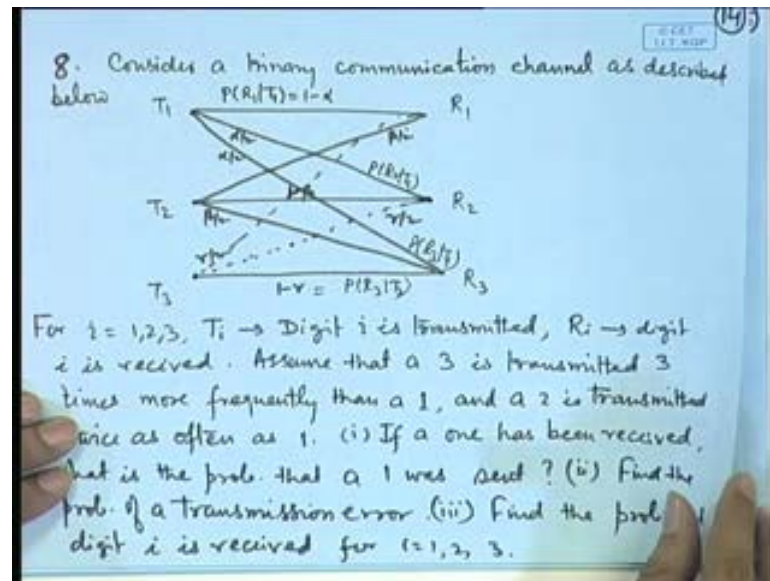 (14)
8. Consider a binary communication channel as described
below T₁ P(R₁/T₁)=1-α R₁
α/2 β/2
α/2 P(R₂/T₁)
T₂ R₂
β/2 r/2
r/2 P(R₃/T₁)
T₃ 1-r = P(R₃/T₃) R₃
For i = 1,2,3, Ti → Digit i is transmitted, Ri → digit
i is recived. Assume that a 3 is transmitted 3
times more frequently than a 1, and a 2 is transmitted
twice as often as 1. (i) If a one has been received,
what is the prob. that a 1 was sent? (ii) Find the
prob. of a transmission error. (iii) Find the prob
digit i is received for i=1,2,3.